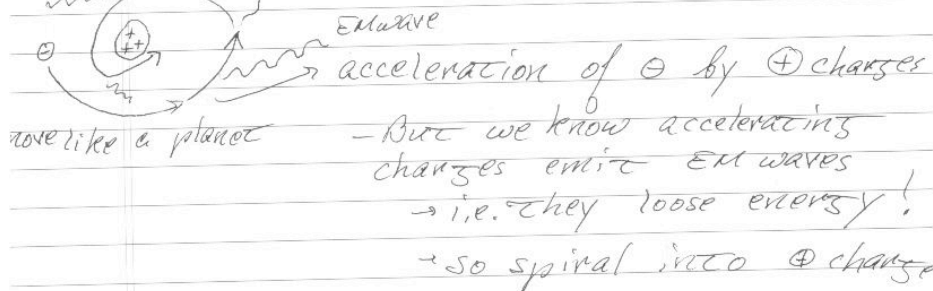 EM wave
acceleration of ⊖ by ⊕ charges
move like a planet
- But we know accelerating
charges emit EM waves
→ i.e. they loose energy!
→ so spiral into ⊕ charge